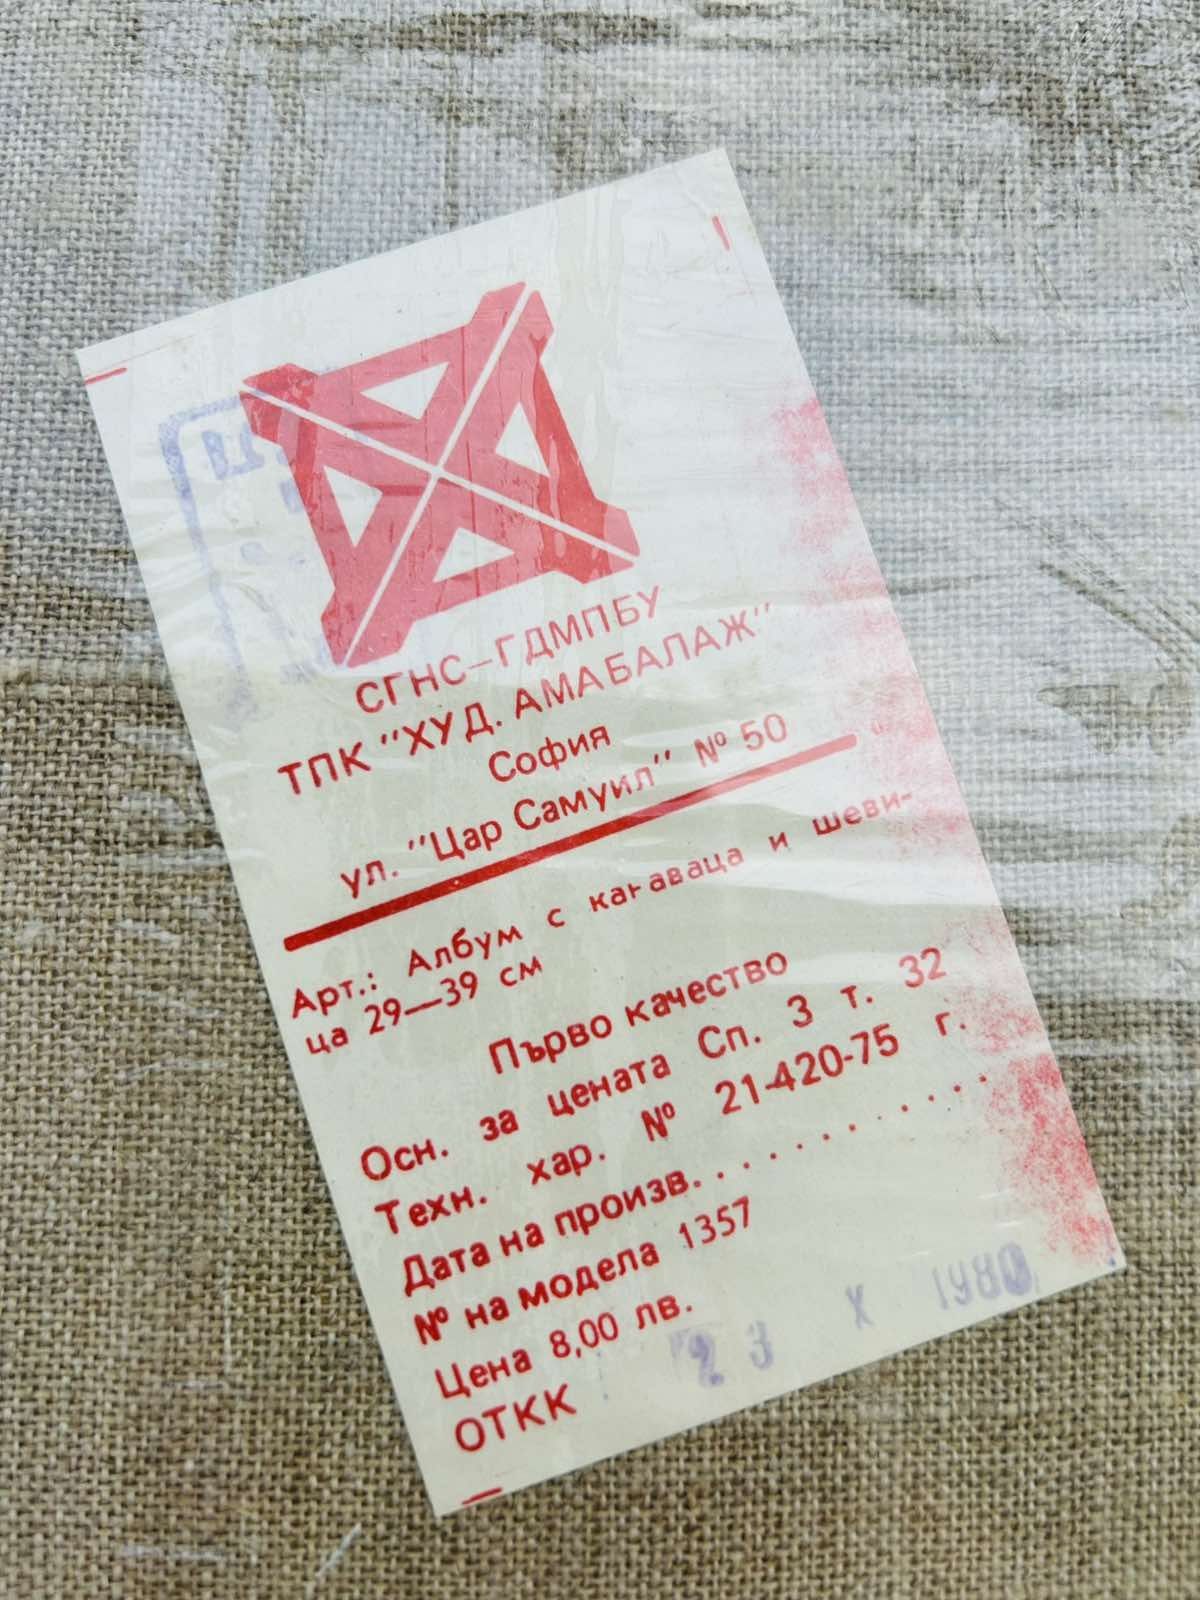 СГНС–ГДМПБУ
ТПК "ХУД. АМАБАЛАЖ"
София
ул. "Цар Самуил" № 50
Арт.: Албум с канаваца и шеви-
ца 29—39 см
Първо качество
Осн. за цената Сп. 3 т. 32
Техн. хар. № 21-420-75 г.
Дата на произв. . . . . . . . . . . .
№ на модела 1357
Цена 8,00 лв.
ОТКК
23 X 1980